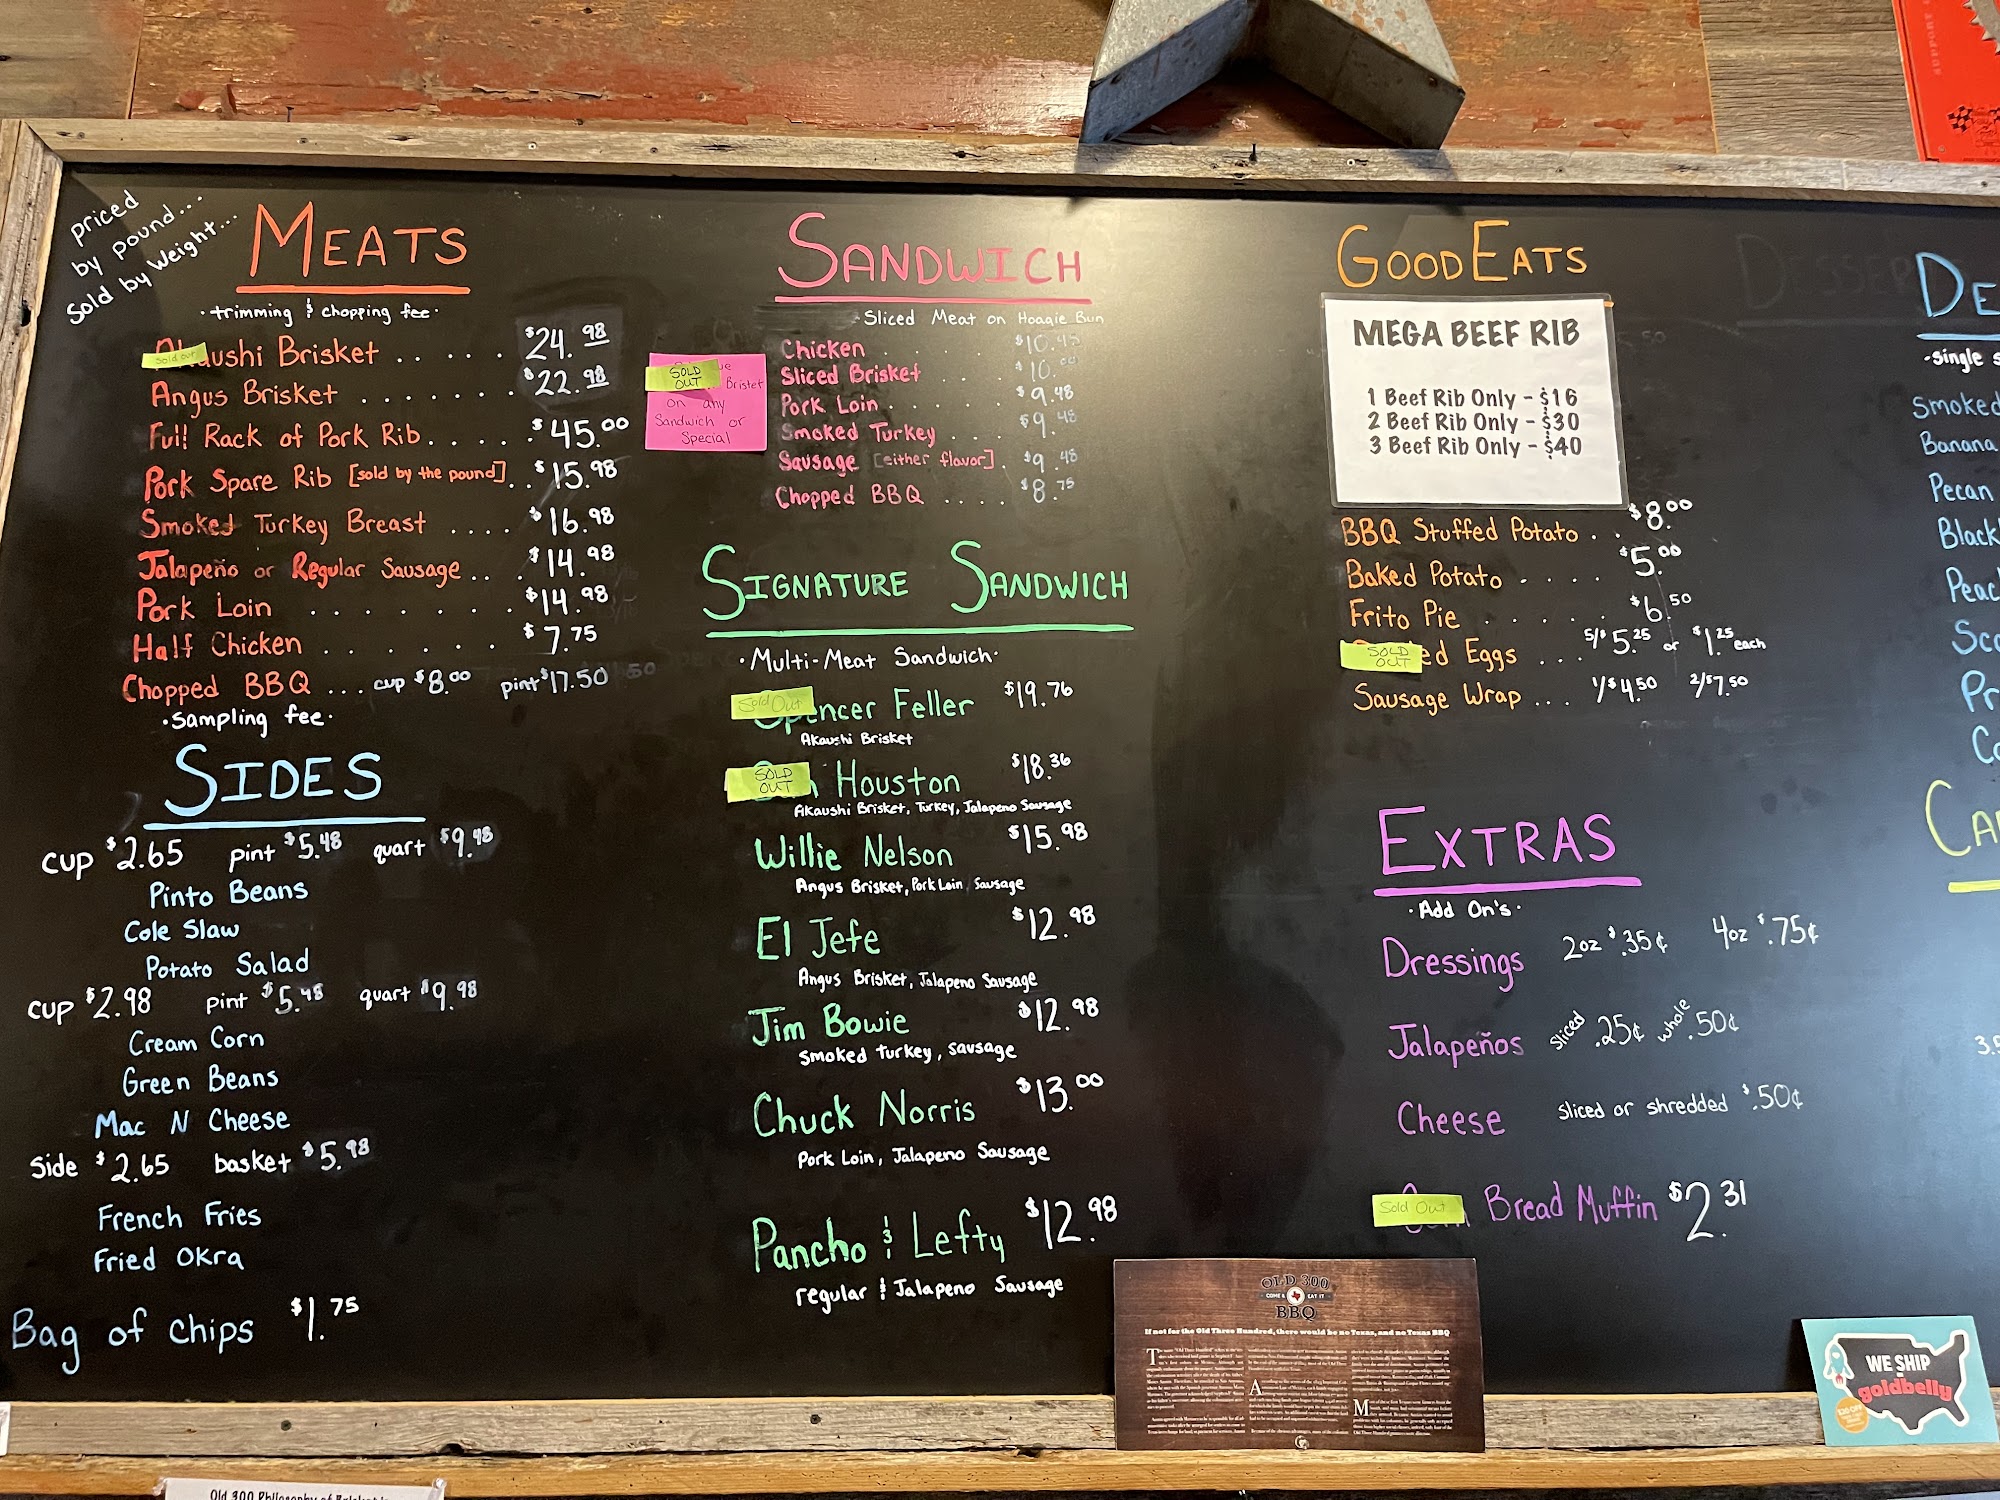 priced
by pound...
Sold by Weight...
MEATS
·trimming & chopping fee·
Sold out
ushi Brisket ..... $24.98
Angus Brisket ....... $22.98
Full Rack of Pork Rib..... $45.00
Pork Spare Rib [sold by the pound]... $15.98
Smoked Turkey Breast .... $16.98
Jalapeño or Regular Sausage... $14.98
Pork Loin ....... $14.98
Half Chicken ...... $7.75
Chopped BBQ ... cup $8.00 pint $17.50
·Sampling fee·
SIDES
cup $2.65 pint $5.48 quart $9.98
Pinto Beans
Cole Slaw
Potato Salad
cup $2.98 pint $5.48 quart $9.98
Cream Corn
Green Beans
Mac N Cheese
Side $2.65 basket $5.98
French Fries
Fried Okra
Bag of Chips $1.75
SANDWICH
·Sliced Meat on Hoagie Bun
SOLD OUT
Brisket
on any
Sandwich or
Special
Chicken
Sliced Brisket .... $10.00
Pork Loin ..... $9.48
Smoked Turkey ... $9.48
Sausage [either flavor]. $9.48
Chopped BBQ .... $8.75
SIGNATURE SANDWICH
·Multi-Meat Sandwich·
Sold Out
Spencer Feller $19.76
Akaushi Brisket
SOLD OUT
Houston $18.36
Akaushi Brisket, Turkey, Jalapeno Sausage
Willie Nelson $15.98
Angus Brisket, Pork Loin, Sausage
El Jefe $12.98
Angus Brisket, Jalapeno Sausage
Jim Bowie $12.98
Smoked turkey, Sausage
Chuck Norris $13.00
Pork Loin, Jalapeno Sausage
Pancho & Lefty $12.98
regular & Jalapeno Sausage
GOOD EATS
MEGA BEEF RIB
1 Beef Rib Only - $16
2 Beef Rib Only - $30
3 Beef Rib Only - $40
BBQ Stuffed Potato .. $8.00
Baked Potato .... $5.00
Frito Pie ..... $6.50
SOLD OUT
ed Eggs ... 5/$5.25 or $1.25 each
Sausage Wrap ... 1/$4.50 2/$7.50
EXTRAS
·Add On's·
Dressings 2oz $.35¢ 4oz $.75¢
Jalapeños sliced .25¢ whole .50¢
Cheese sliced or shredded $.50¢
Sold Out
Bread Muffin $2.31
DESSER
DE
·Single s
Smoked
Banana
Pecan
Black
Peac
Sco
Pr
Co
CA
3.5
OLD 300
COME & EAT IT
BBQ
If not for the Old Three Hundred, there would be no Texas, and no Texas BBQ
WE SHIP
goldbelly
Old 300 Philosophy of Brisket